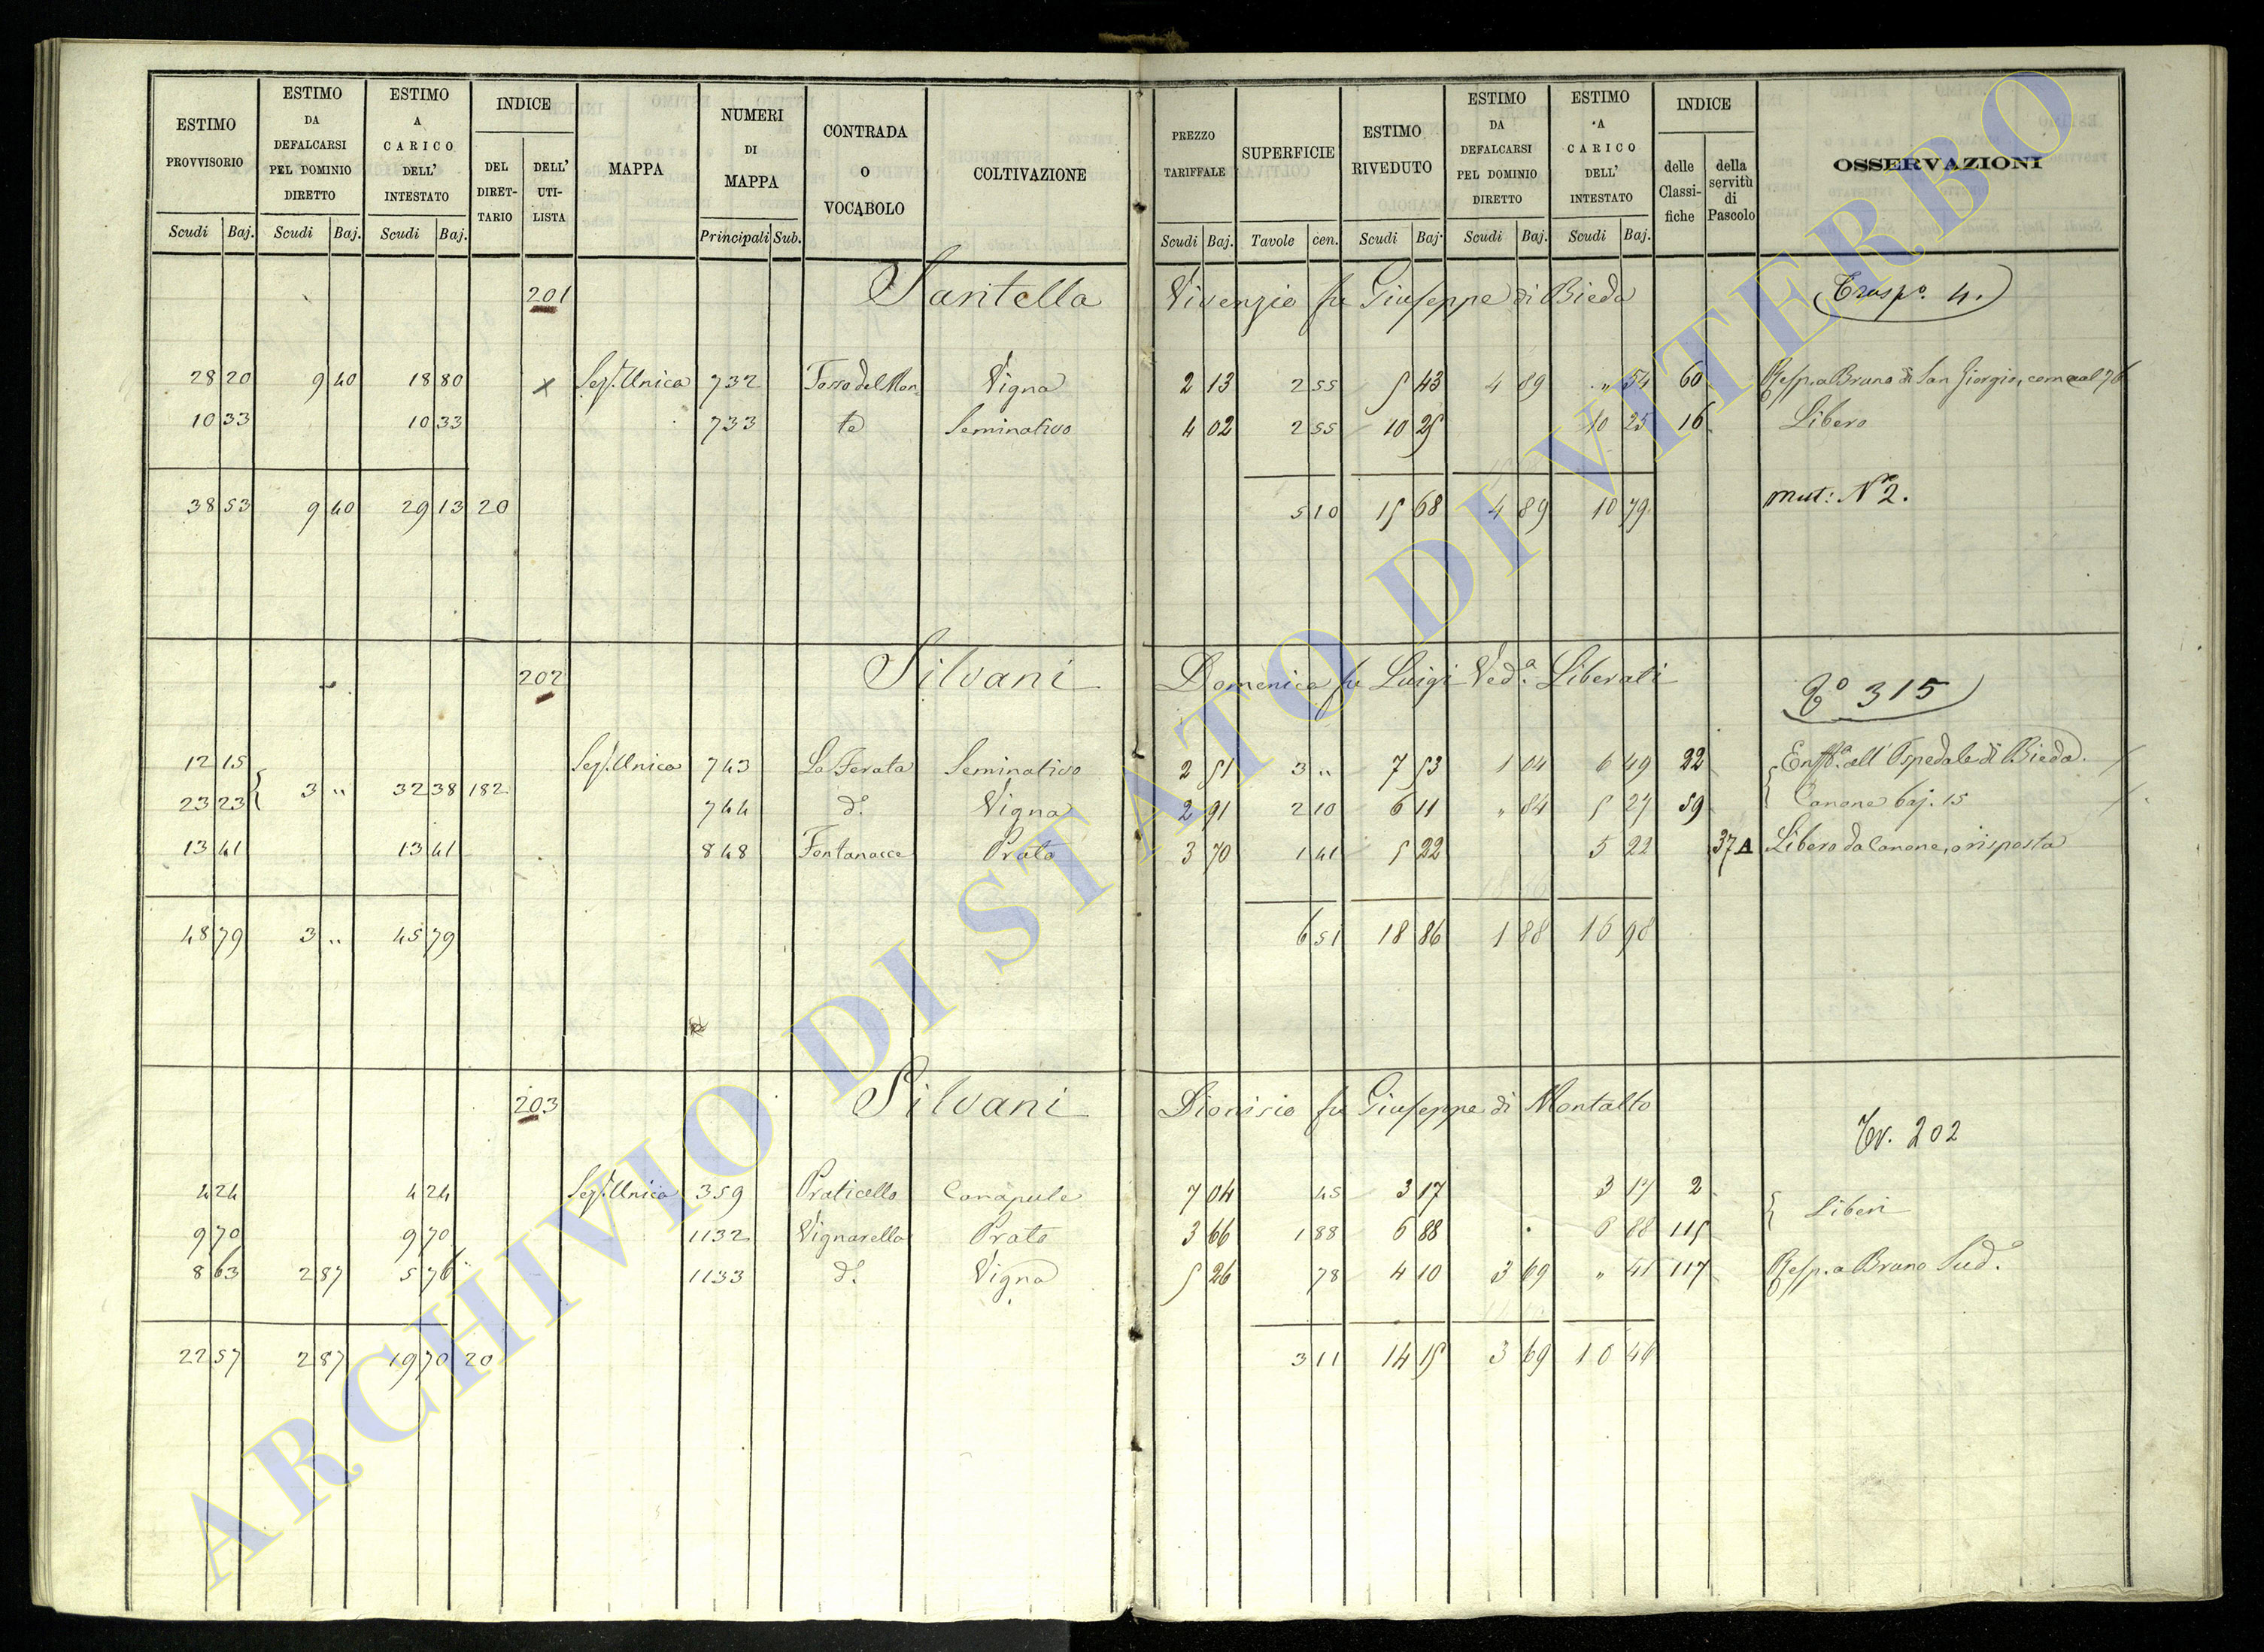 ESTIMO PROVVISORIO | ESTIMO DA DEFALCARSI PEL DOMINIO DIRETTO | ESTIMO A CARICO DELL' INTESTATO | INDICE | MAPPA | NUMERI DI MAPPA | CONTRADA O VOCABOLO | COLTIVAZIONE | PREZZO TARIFFALE | SUPERFICIE | ESTIMO RIVEDUTO | ESTIMO DA DEFALCARSI PEL DOMINIO DIRETTO | ESTIMO A CARICO DELL' INTESTATO | INDICE | OSSERVAZIONI
DEL DIRET-TARIO | DELL' UTI-LISTA | delle Classi-fiche | della servitù di Pascolo
Scudi | Baj. | Scudi | Baj. | Scudi | Baj. | Principali | Sub. | Scudi | Baj. | Tavole | cen. | Scudi | Baj. | Scudi | Baj. | Scudi | Baj.
201 Santella Vivenzio fu Giuseppe di Bieda Trasp.º 4.
28 20 | 9 40 | 18 80 | x | Sez.e Unica | 732 | Fosso del Mon- | Vigna | 2 13 | 2 55 | 5 43 | 4 89 | " 54 | 60 | Resp. a Bruno di San Giorgio, come al 76
10 33 | 10 33 | 733 | te | Seminativo | 4 02 | 2 55 | 10 25 | 10 25 | 16 | Libero
38 53 | 9 40 | 29 13 | 20 | 5 10 | 15 68 | 4 89 | 10 79 | mut: N. 2.
202 Silvani Domenica fu Luigi Ved.a Liberati T.º 315
12 15 | Sez.e Unica | 743 | La Ferata | Seminativo | 2 51 | 3 " | 7 53 | 1 04 | 6 49 | 22 | Enft.a all' Ospedale di Bieda.
23 23 | 3 " | 32 38 | 182 | 744 | d.º | Vigna | 2 91 | 2 10 | 6 11 | " 84 | 5 27 | 59 | Canone baj. 15
13 41 | 13 41 | 848 | Fontanacce | Prato | 3 70 | 1 41 | 5 22 | 5 22 | 37 A | Libero da Canone, o risposta
48 79 | 3 " | 45 79 | 6 51 | 18 86 | 1 88 | 16 98
203 Silvani Dionisio fu Giuseppe di Montalto Tr. 202
4 24 | 4 24 | Sez.e Unica | 359 | Praticello | Canapule | 7 04 | 45 | 3 17 | 3 17 | 2 | Liberi
9 70 | 9 70 | 1132 | Vignarella | Prato | 3 66 | 1 88 | 6 88 | 6 88 | 115
8 63 | 2 87 | 5 76 | 1133 | d.º | Vigna | 5 26 | 78 | 4 10 | 3 69 | " 41 | 117 | Resp. a Bruno Sud.º
22 57 | 2 87 | 19 70 | 20 | 3 11 | 14 15 | 3 69 | 10 46
ARCHIVIO DI STATO DI VITERBO